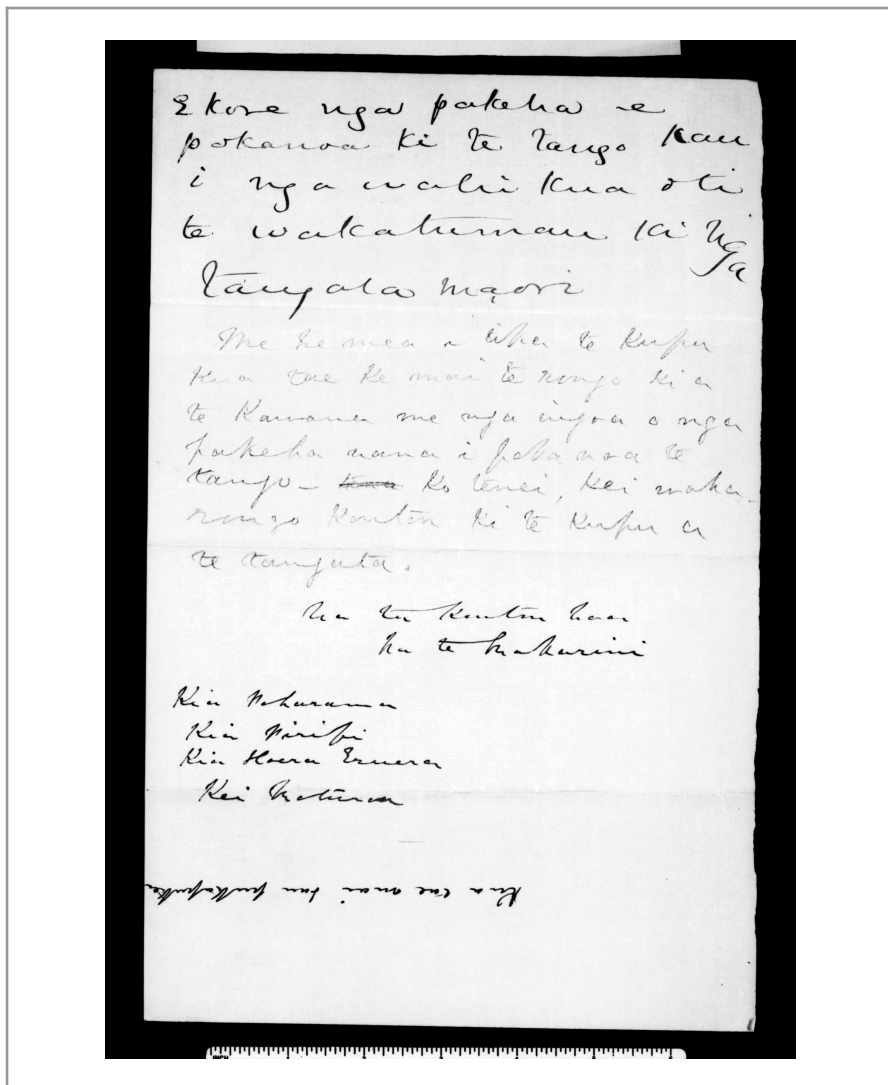 E kore nga pakeha e
pokanoa ki te tango kau
i nga wahi kua oti
te wakatuman ki nga
tangata maori
Me he mea i whu te kupu
kua tae ke mai te rongo ki a
te Kawana me nga ingoa o nga
pakeha nana i poka noa te
tango – Ko tenei, kei waka-
rongo koutou ki te kupu a
te tangata.
Na to koutou hoa
Na te Makarini
Kia Poharama
Kia Piripi
Kia Hoera Eruera
Kei Moturoa
Kua tae mai tau pukapuka